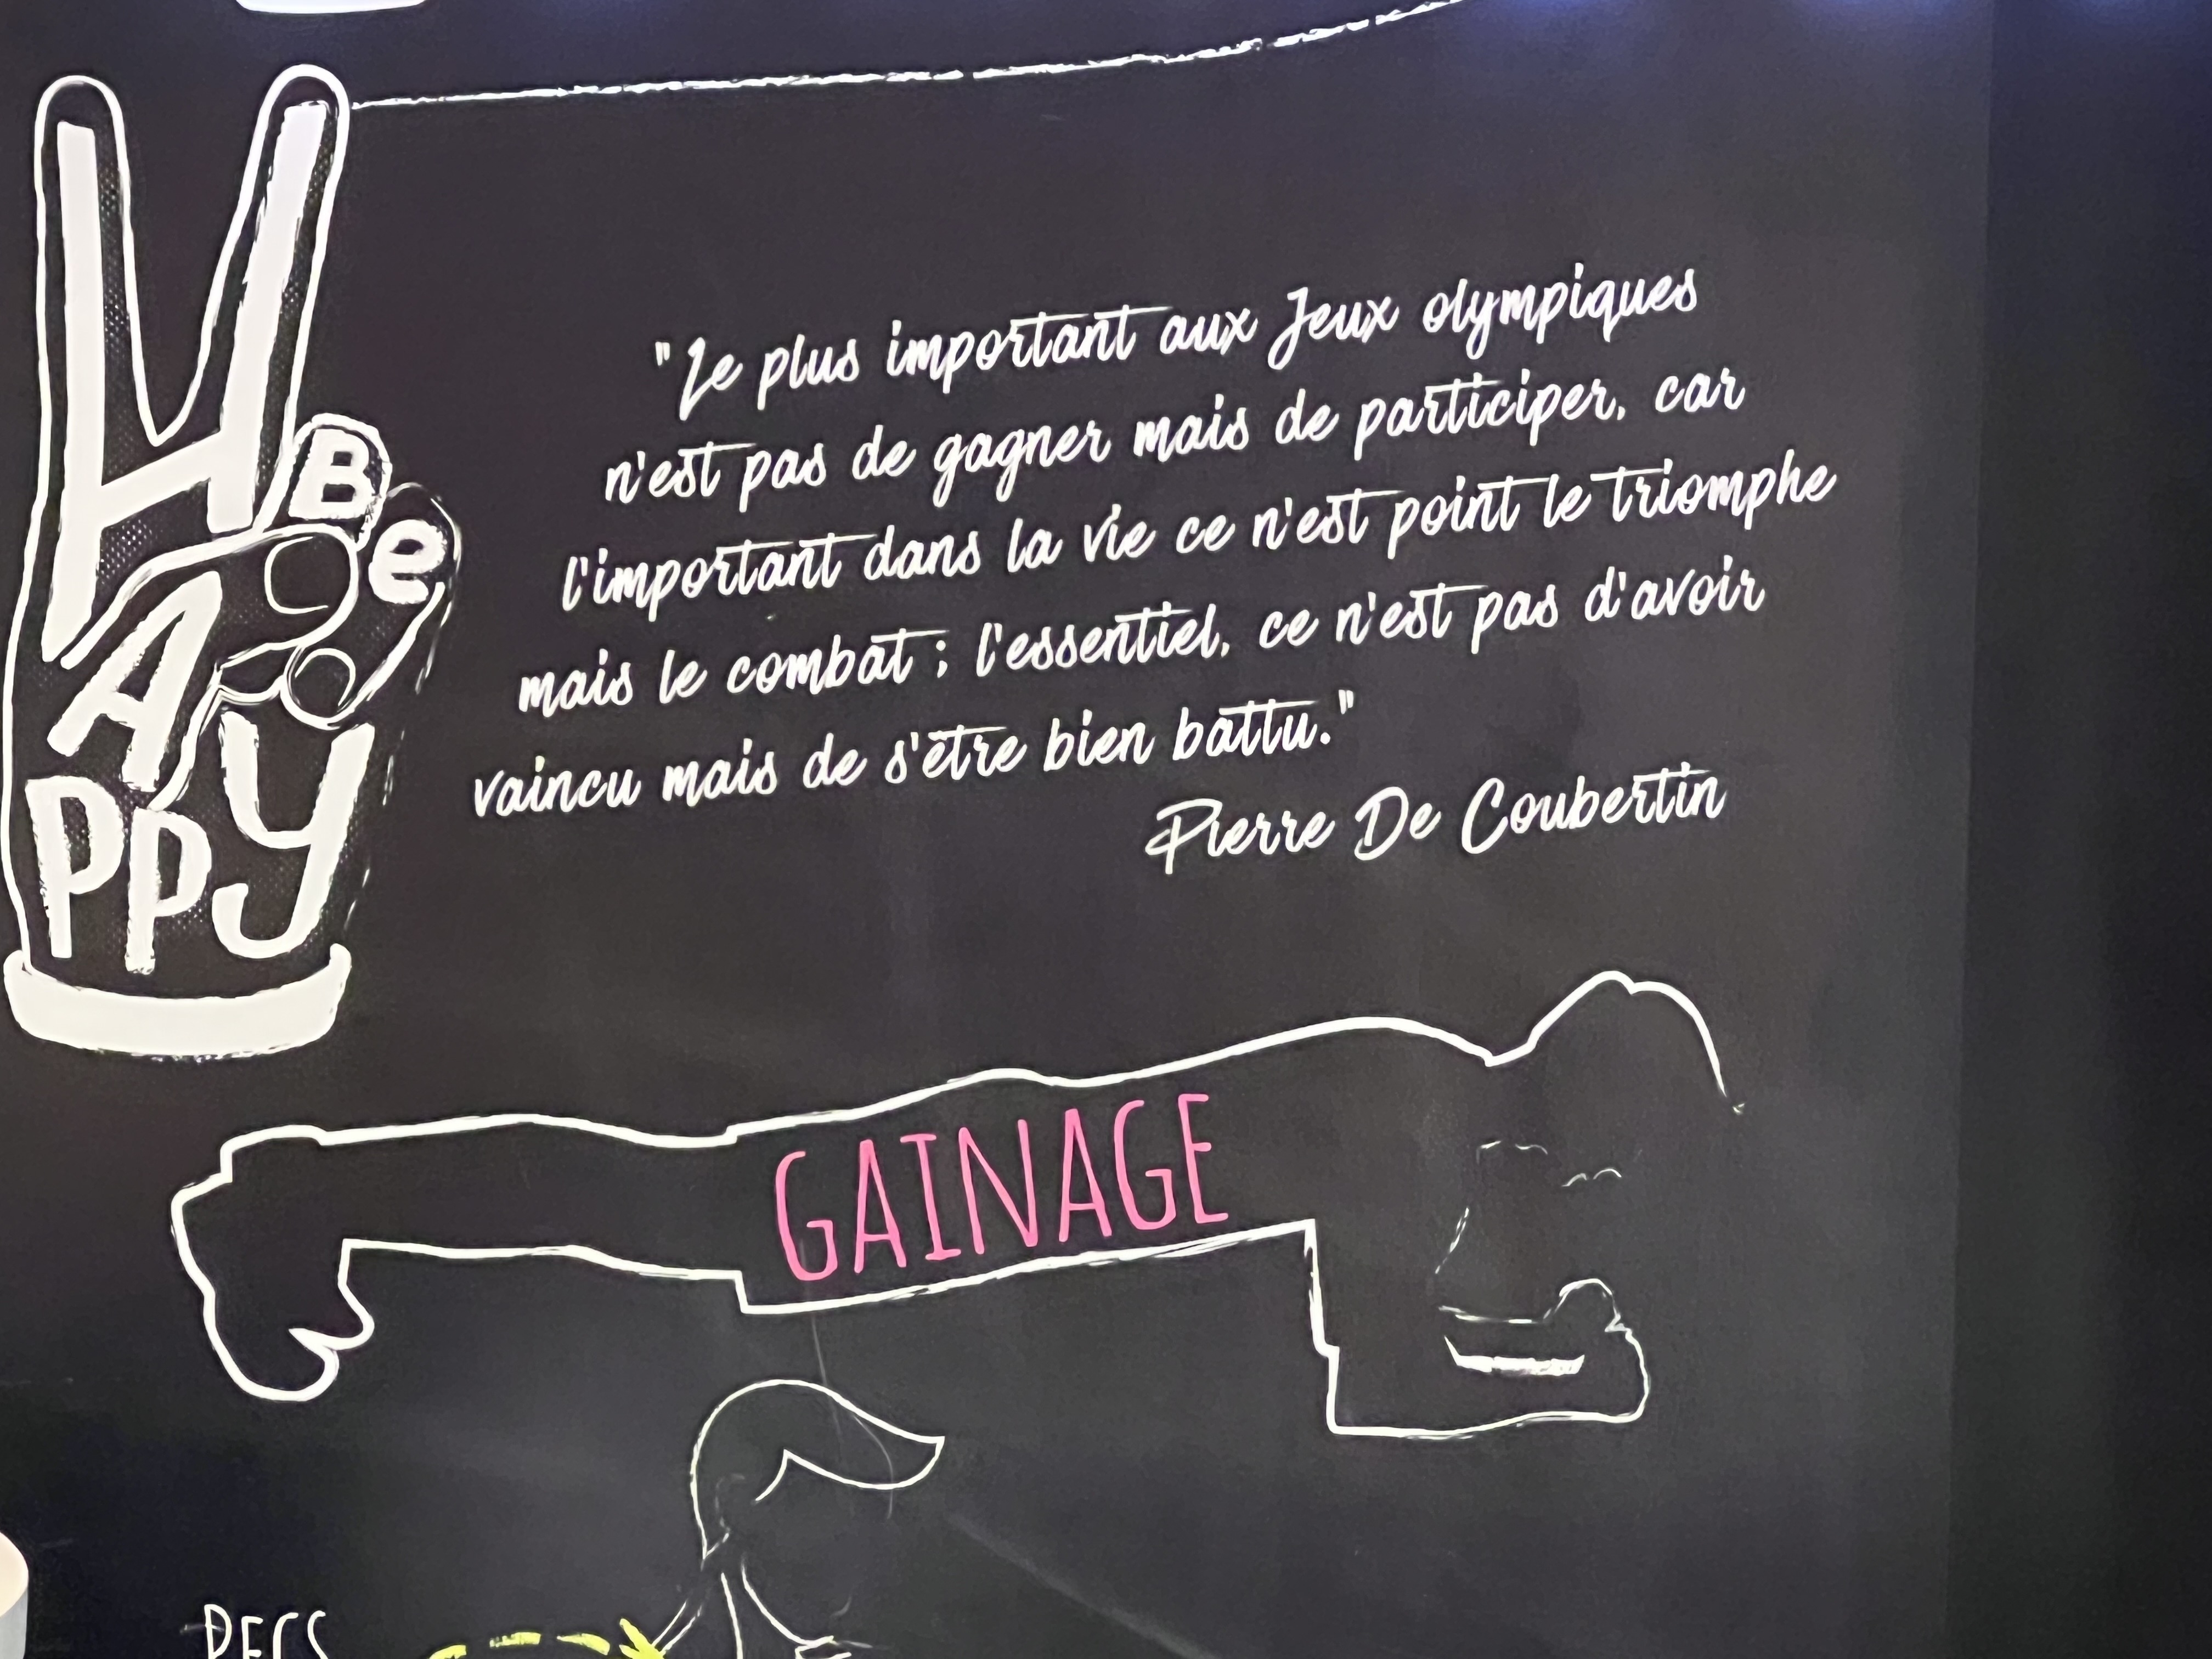 Be
HAPPY
"Le plus important aux Jeux olympiques
n'est pas de gagner mais de participer, car
l'important dans la vie ce n'est point le triomphe
mais le combat ; l'essentiel, ce n'est pas d'avoir
vaincu mais de s'être bien battu."
Pierre De Coubertin
GAINAGE
PECS